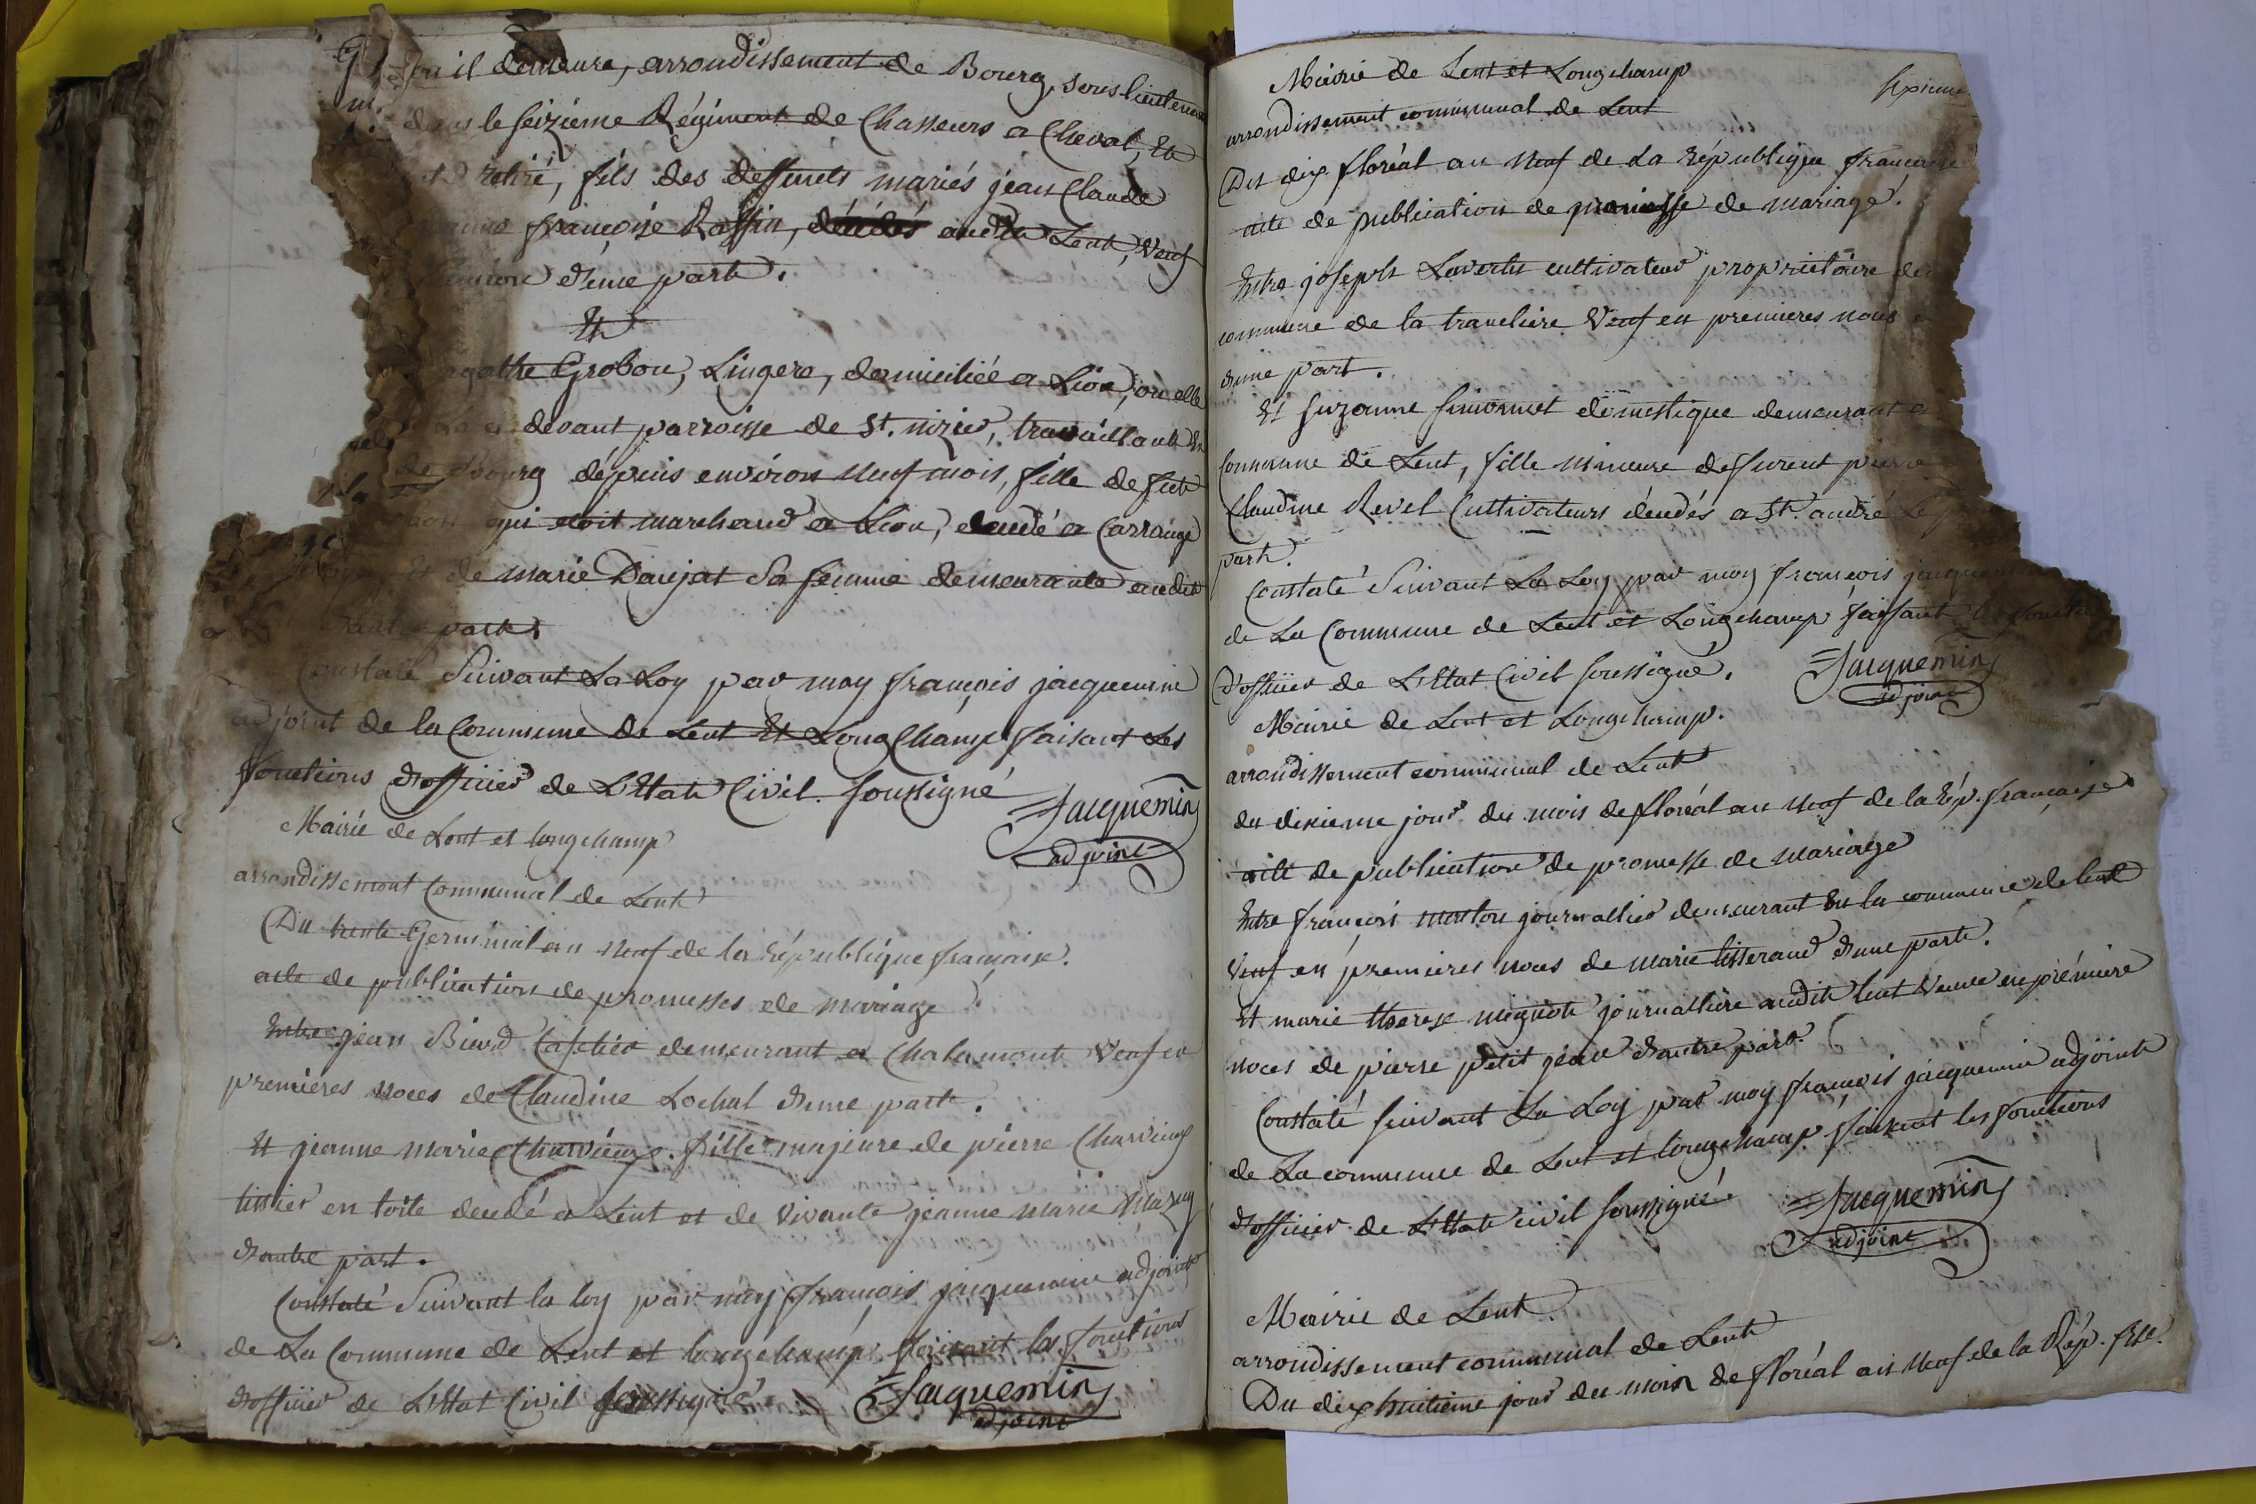 où il demeure, arrondissement de Bourg, sous lieutenant
dans le seizieme Régiment de Chasseurs a Cheval, Et
retiré, fils des deffunts mariés jean Claude
françoise Raffin, décédés audit Lent, Veuf
d'une part.
Et
agathe Grobon, Lingere, domiciliée a Lion, où elle
devant parroisse de St. nizier, travaillant
bourg dépuis environ neuf mois, fille de feu
qui etoit marchand a Lion, decedé a Carrouge
Et de marie Daujat Sa femme demeurante audit
part.
Constaté Suivant La Loy par moy françois jacquemin
adjoint de la Commune de Lent Et LongChamp faisant Les
fonctions d'officier de L'Etat Civil soussigné
Jacquemin
adjoint
Mairie de Lent et longchamp
arrondissement Communal de Lent
Du trente Germinal an neuf de la république française.
acte de publication de promesses de mariage.
Entre jean demeurant a Chalamont Veuf en
premieres noces de Claudine Lochal d'une part.
Et jeanne Marie Charvieux fille majeure de pierre Charvieux
tissier en toile decedé a Lent et de vivante jeanne Marie
d'autre part.
Constaté Suivant la loy par moy françois jacquemin adjoint
de La Commune de Lent et longchamp faisant les fonctions
d'officier de L'Etat Civil soussigné
Jacquemin
adjoint
Mairie de Lent et Longchamp
arrondissement communal de Lent
Du dix floréal an neuf de La république française
acte de publication de promesse de mariage.
Entre joseph cultivateur proprietaire
commune de la tranclière Veuf en premieres noces
d'une part.
Et Suzanne Simonnet domestique demeurant a
Commune de Lent, fille mineure de furent pierre
Claudine Revel Cultivateurs décédés a St. andré
part.
Constaté Suivant La Loy par moy françois
de La Commune de Lent et Longchamp faisant
d'officier de L'Etat Civil soussigné.
Jacquemin
adjoint
Mairie de Lent et Longchamp.
arrondissement communal de Lent
du dixieme jour du mois de floréal an neuf de la Rép. française.
acte de publication de promesse de mariage
Entre françois journallier demeurant en la commune de lent
Veuf en premieres noces de marie tisserand d'une part.
Et marie therese mignot journalliere audit lent Veuve en prémiere
noces de pierre petit jean d'autre part.
Constaté suivant La Loy par moy françois jacquemin adjoint
de La commune de Lent et longchamp faisant les fonctions
d'officier de L'Etat civil soussigné
Jacquemin
adjoint
Mairie de Lent
arrondissement communal de Lent
Du dix huitieme jour du mois de floréal an neuf de la Rép. fse.